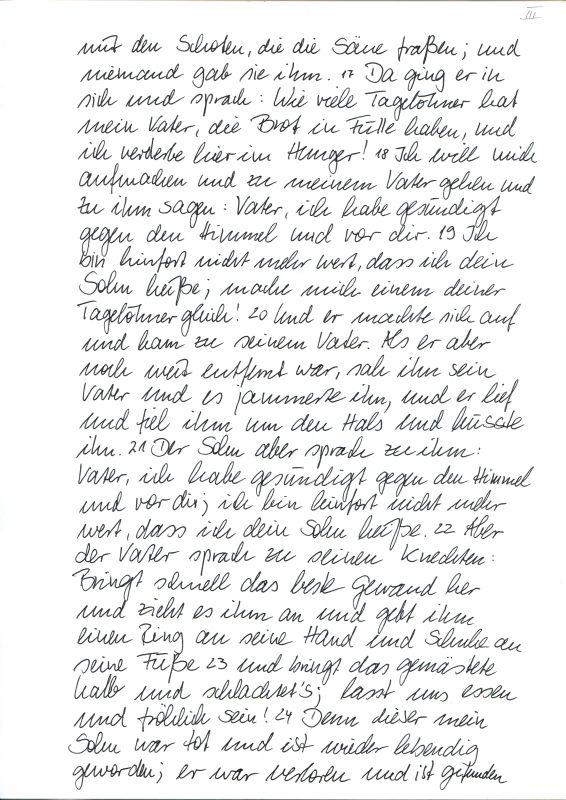 III
mit den Schoten, die die Säue fraßen; und
niemand gab sie ihm. 17 Da ging er in
sich und sprach: Wie viele Tagelöhner hat
mein Vater, die Brot in Fülle haben, und
ich verderbe hier im Hunger! 18 Ich will mich
aufmachen und zu meinem Vater gehen und
zu ihm sagen: Vater, ich habe gesündigt
gegen den Himmel und vor dir. 19 Ich
bin hinfort nicht mehr wert, dass ich dein
Sohn heiße; mache mich einem deiner
Tagelöhner gleich! 20 Und er machte sich auf
und kam zu seinem Vater. Als er aber
noch weit entfernt war, sah ihn sein
Vater und es jammerte ihn, und er lief
und fiel ihm um den Hals und küsste
ihn. 21 Der Sohn aber sprach zu ihm:
Vater, ich habe gesündigt gegen den Himmel
und vor dir; ich bin hinfort nicht mehr
wert, dass ich dein Sohn heiße. 22 Aber
der Vater sprach zu seinen Knechten:
Bringt schnell das beste Gewand her
und zieht es ihm an und gebt ihm
einen Ring an seine Hand und Schuhe an
seine Füße 23 und bringt das gemästete
Kalb und schlachtet's; lasst uns essen
und fröhlich sein! 24 Denn dieser mein
Sohn war tot und ist wieder lebendig
geworden; er war verloren und ist gefunden